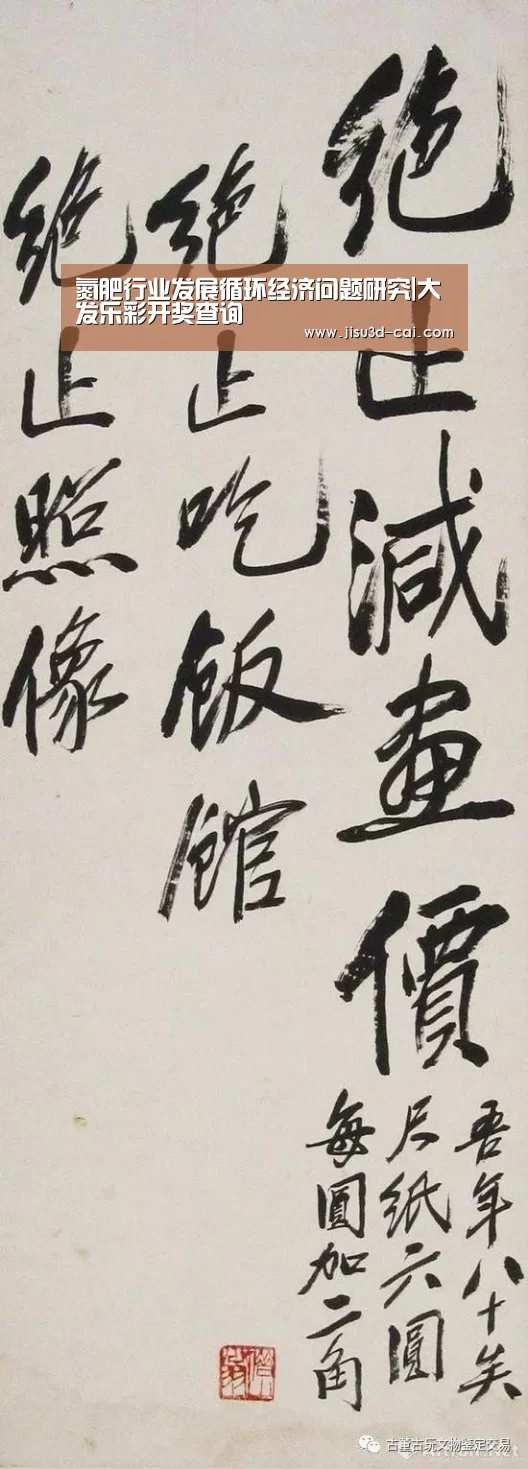 绝止減画價
吾年八十矣
尺紙六圓
每圓加二角
绝止吃飯館
绝止照像
氮肥行业发展循环经济问题研究|大
发乐彩开奖查询
www.jisu3d-cai.com
古董古玩文物鉴定交易
Artron.Net